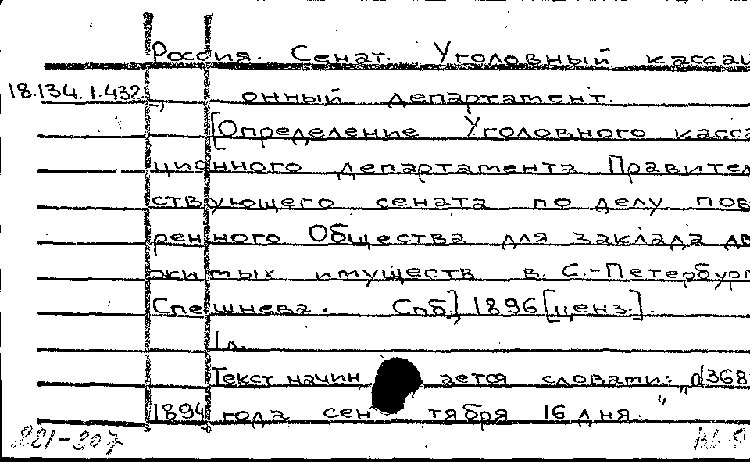 Россия. Сенат. Уголовный кассаци
18.134.1.432
онный департамент.
[Определение Уголовного касса
ционного департамента Правител
ствующего сената по делу пов
ренного Общества для заклада дв
жимых имуществ в С.-Петербург
Спешнева. Спб] 1896 [ценз.]
1 л.
Текст начинается словами: "№1368
1894 года сентября 16 дня."
221-307